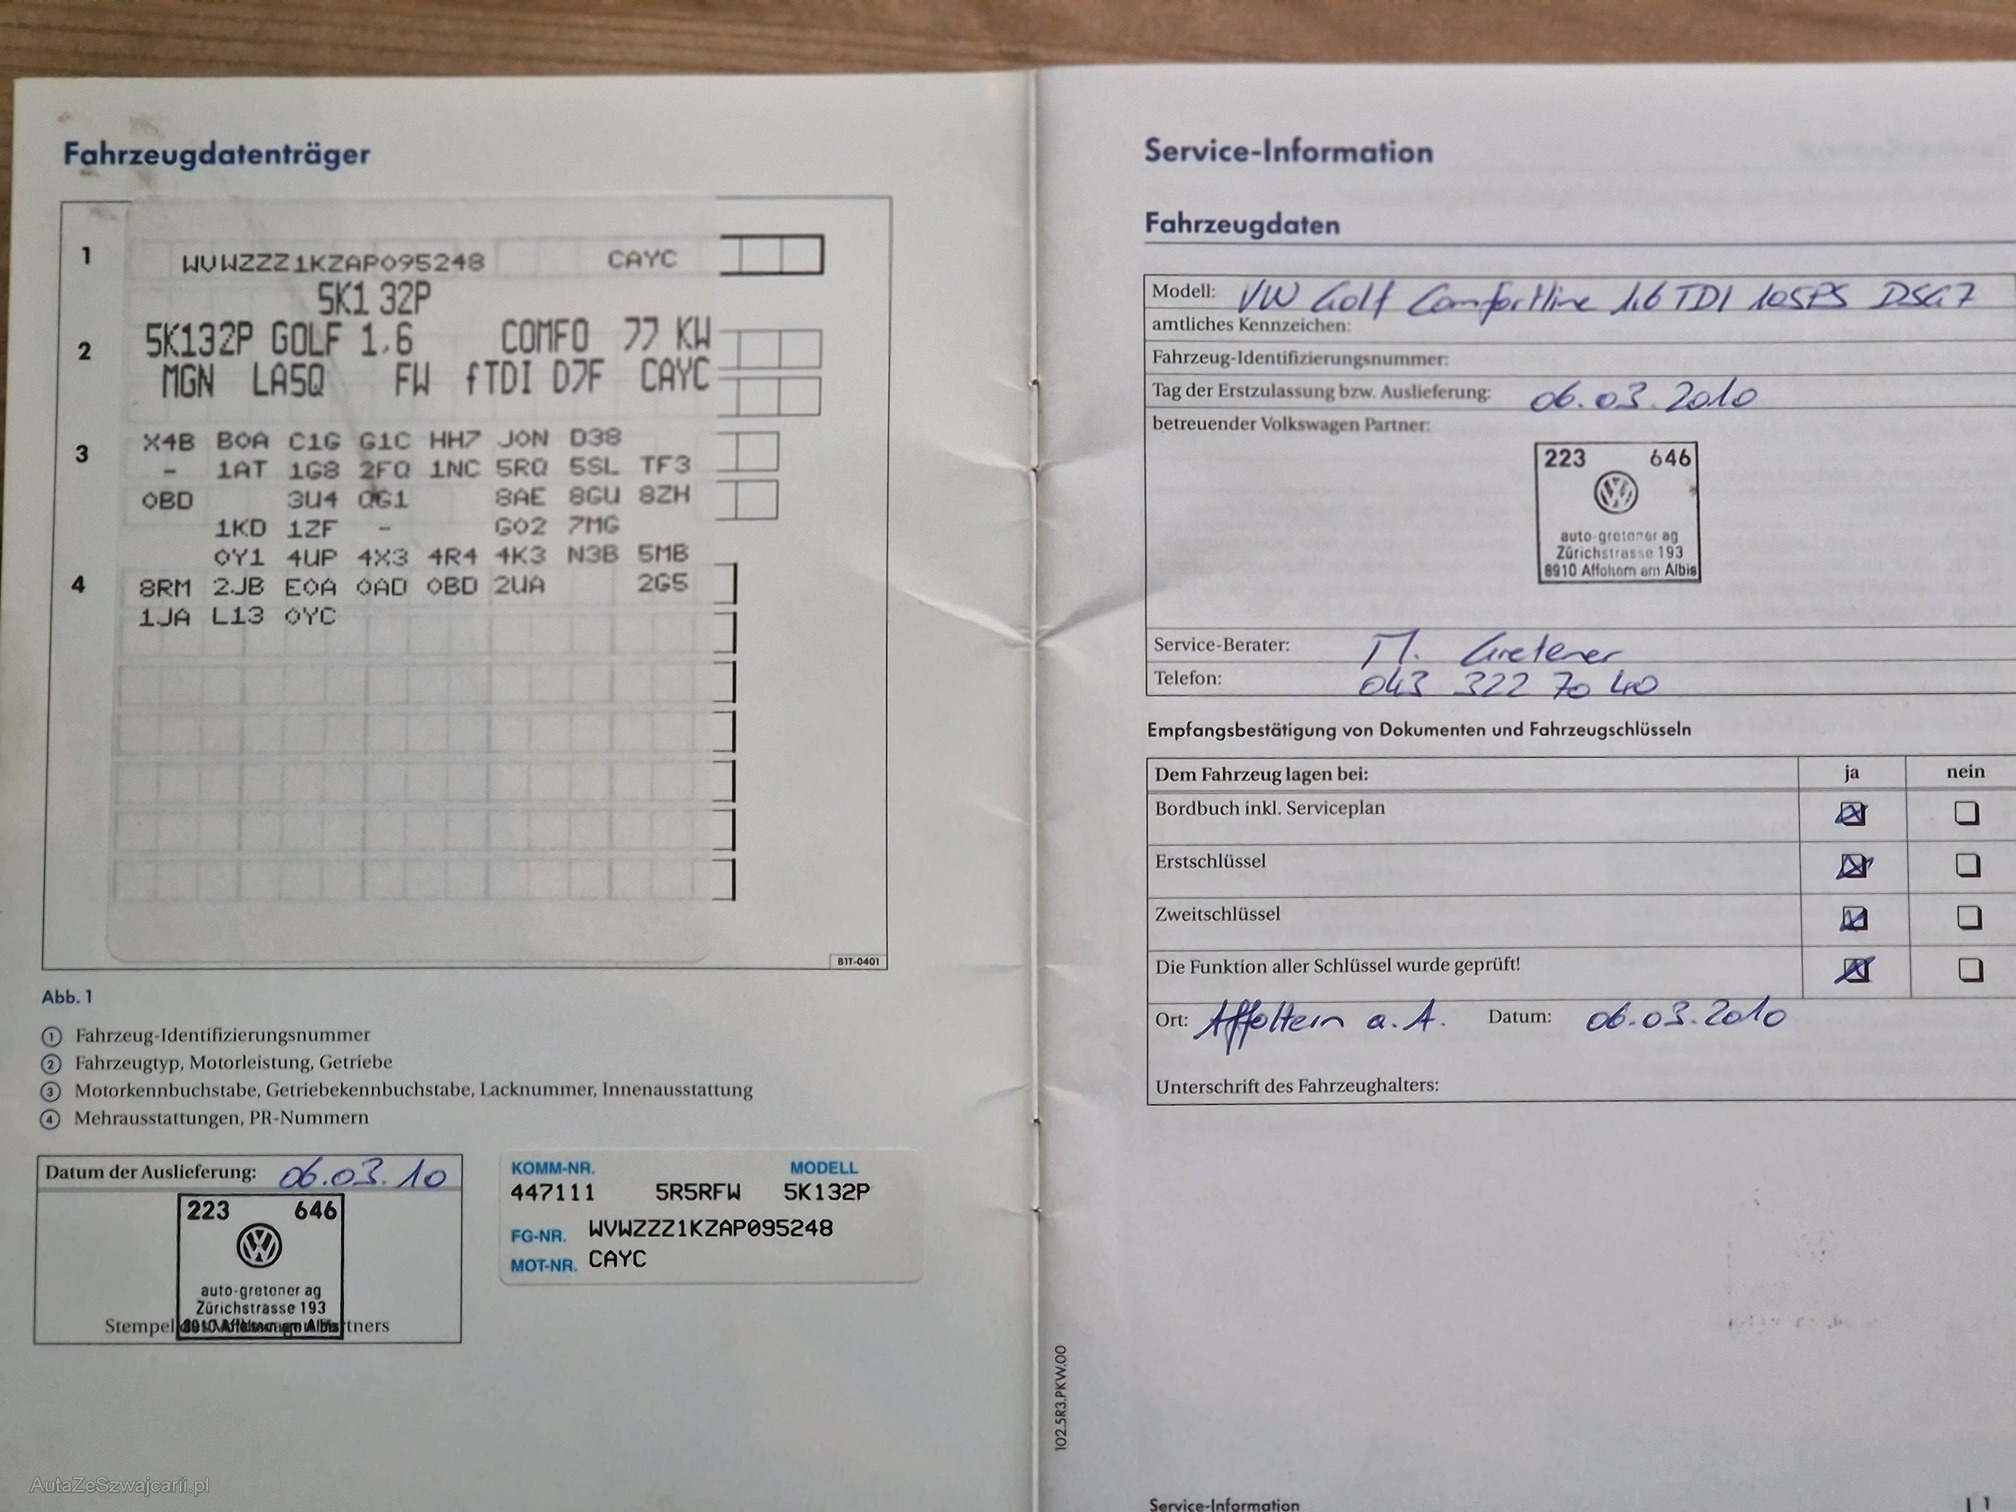 Fahrzeugdatenträger
1
WVWZZZ1KZAP095248 CAYC
5K1 32P
2
5K132P GOLF 1.6 COMFO 77 KW
MGN LA5Q FW fTDI D7F CAYC
3
X4B B0A C1G G1C HH7 J0N D38
- 1AT 1G8 2FQ 1NC 5RQ 5SL TF3
0BD 3U4 QG1 8AE 8GU 8ZH
1KD 1ZF - G02 7MG
0Y1 4UP 4X3 4R4 4K3 N3B 5MB
4
8RM 2JB E0A 0AD 0BD 2UA 2G5
1JA L13 0YC
B1T-0401
Abb. 1
1 Fahrzeug-Identifizierungsnummer
2 Fahrzeugtyp, Motorleistung, Getriebe
3 Motorkennbuchstabe, Getriebekennbuchstabe, Lacknummer, Innenausstattung
4 Mehrausstattungen, PR-Nummern
Datum der Auslieferung: 06.03.10
223 646
auto-gretener ag
Zürichstrasse 193
8910 Affoltern am Albis
Stempel
KOMM-NR. MODELL
447111 5R5RFW 5K132P
FG-NR. WVWZZZ1KZAP095248
MOT-NR. CAYC
Service-Information
Fahrzeugdaten
Modell: VW Golf Comfortline 1.6 TDI 105PS DSG7
amtliches Kennzeichen:
Fahrzeug-Identifizierungsnummer:
Tag der Erstzulassung bzw. Auslieferung: 06.03.2010
betreuender Volkswagen Partner:
223 646
auto-gretener ag
Zürichstrasse 193
8910 Affoltern am Albis
Service-Berater: M. Gretener
Telefon: 043 322 70 40
Empfangsbestätigung von Dokumenten und Fahrzeugschlüsseln
Dem Fahrzeug lagen bei: ja nein
Bordbuch inkl. Serviceplan
Erstschlüssel
Zweitschlüssel
Die Funktion aller Schlüssel wurde geprüft!
Ort: Affoltern a. A. Datum: 06.03.2010
Unterschrift des Fahrzeughalters:
102.5R3.PKW.00
Service-Information 1
AutaZeSzwajcarii.pl